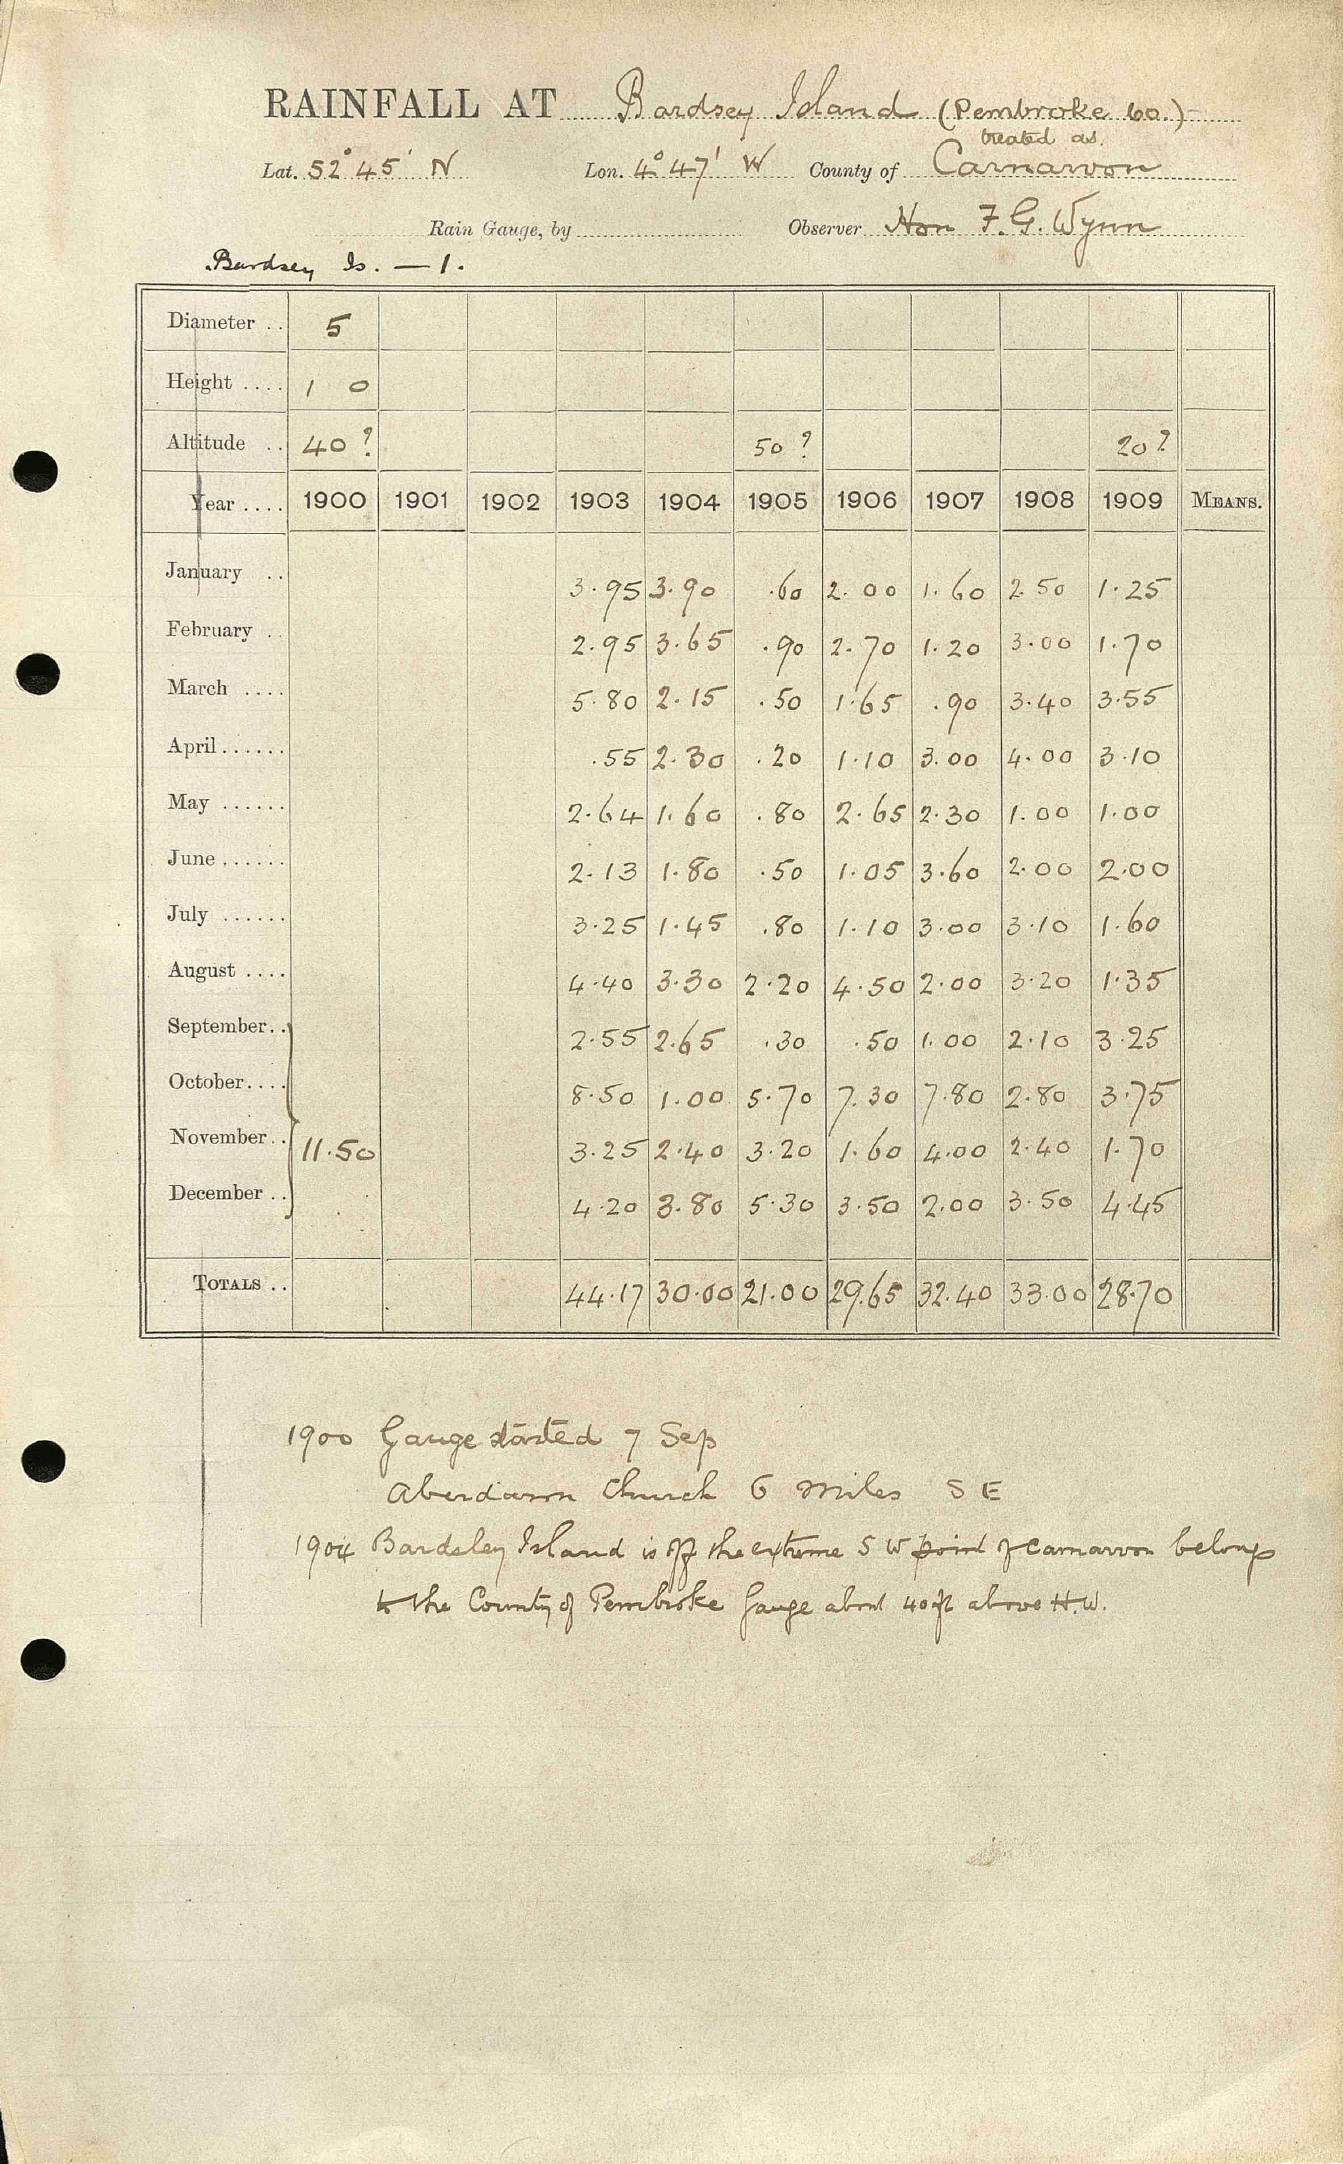 RAINFALL AT Bardsey Island (Pembroke Co.)
treated as
Lat. 52° 45' N Lon. 4° 47' W County of Carnarvon
Rain Gauge, by Observer Hon F. G. Wynn
Bardsey Is. — 1.
Diameter .. 5
Height .... 1 0
Altitude .. 40 ? 50 ? 20 ?
Year .... 1900 1901 1902 1903 1904 1905 1906 1907 1908 1909 MEANS.
January .. 3.95 3.90 .60 2.00 1.60 2.50 1.25
February .. 2.95 3.65 .90 2.70 1.20 3.00 1.70
March .... 5.80 2.15 .50 1.65 .90 3.40 3.55
April ...... .55 2.30 .20 1.10 3.00 4.00 3.10
May ...... 2.64 1.60 .80 2.65 2.30 1.00 1.00
June ...... 2.13 1.80 .50 1.05 3.60 2.00 2.00
July ...... 3.25 1.45 .80 1.10 3.00 3.10 1.60
August .... 4.40 3.30 2.20 4.50 2.00 3.20 1.35
September .. 2.55 2.65 .30 .50 1.00 2.10 3.25
October .... 8.50 1.00 5.70 7.30 7.80 2.80 3.75
November .. 11.50 3.25 2.40 3.20 1.60 4.00 2.40 1.70
December .. 4.20 3.80 5.30 3.50 2.00 3.50 4.45
TOTALS .. 44.17 30.00 21.00 29.65 32.40 33.00 28.70
1900 Gauge started 7 Sep
Aberdaron Church 6 miles S E
1904 Bardsley Island is off the extreme S W point of Carnarvon belongs
to the County of Pembroke Gauge about 40 ft above H.W.